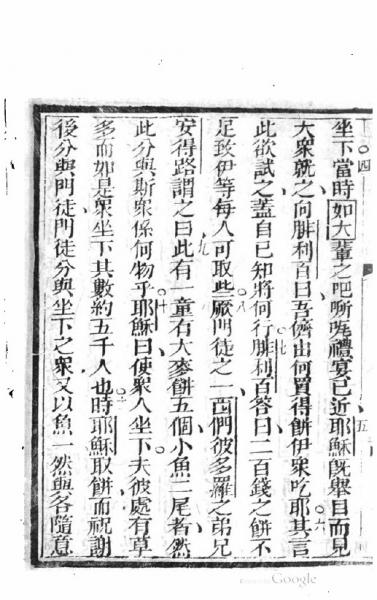 坐下當時如大輩之吧禮宴已近耶穌既舉目而見
大衆就之向腓利百曰吾儕出何買得餅伊衆吃耶其言
此欲試之蓋自已知將何行腓利百答曰二百錢之餅不
足致伊等每人可取些厥門徒之一西們彼多羅之弟兄
安得路謂之曰此有一童有大麥餅五個小魚二尾者然
此分與斯衆係何物乎耶穌曰使衆人坐下夫彼處有草
多而如是衆坐下其數約五千人也時耶穌取餅而祝謝
後分與門徒門徒分與坐下之衆又以魚一然與各隨意
Google